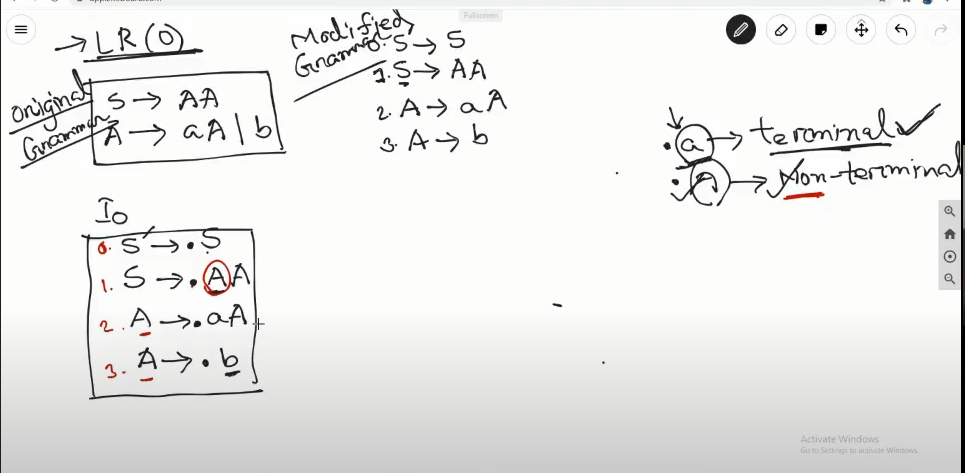 → LR(0)
Original
Grammar
S → AA
A → aA | b
Modified
Grammar
0. S → S
1. S → AA
2. A → aA
3. A → b
Fullscreen
.a → terminal ✓
. → Non-terminal
I0
0. S' → .S
1. S → .AA
2. A → .aA
3. A → .b
Activate Windows
Go to Settings to activate Windows.